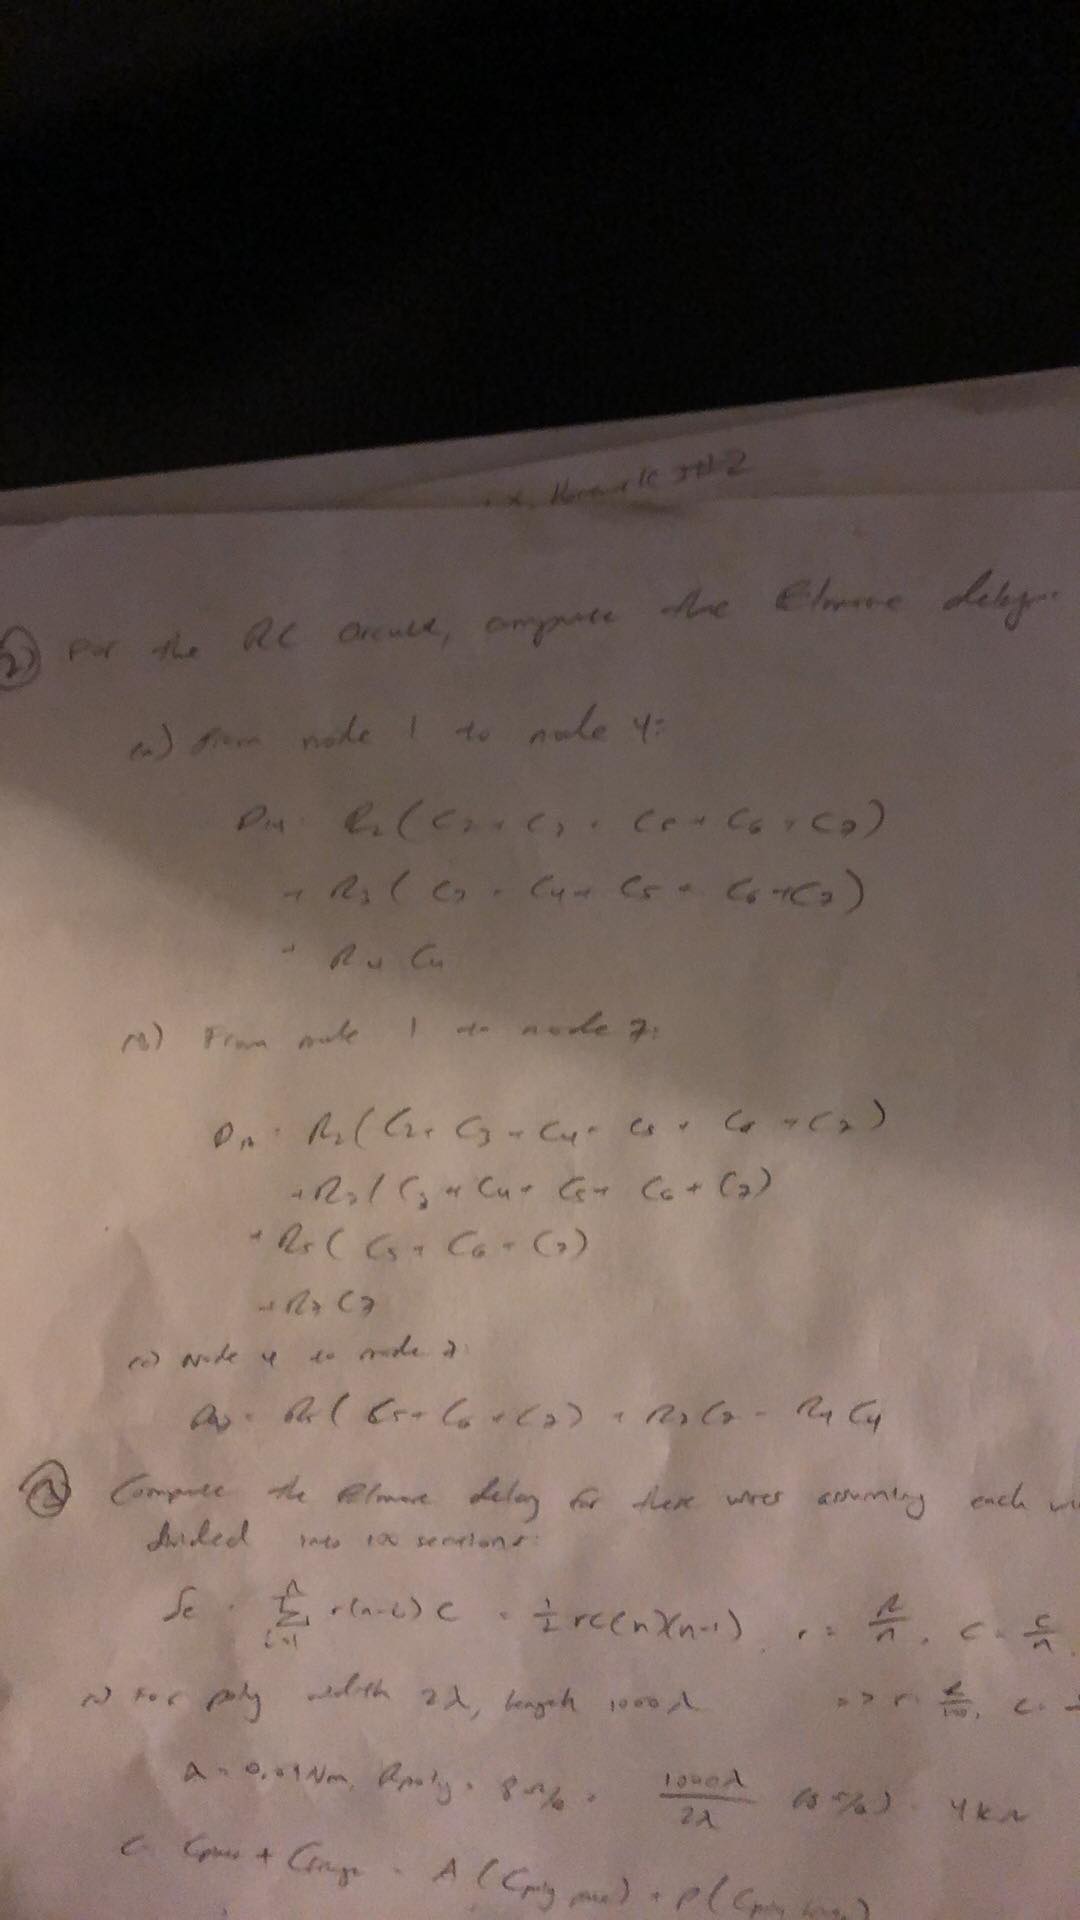 Homework 2
2) For the RC circuit, compute the Elmore delay:
(a) From node 1 to node 4:
D14 = R2(C2 + C3 + C5 + C6 + C7)
+ R3(C3 + C4 + C5 + C6 + C7)
+ R4 C4
(b) From node 1 to node 7:
D17 = R2(C2 + C3 + C4 + C5 + C6 + C7)
+ R3(C3 + C4 + C5 + C6 + C7)
+ R5(C5 + C6 + C7)
+ R7 C7
(c) Node 4 to node 7:
D47 = R5(C5 + C6 + C7) + R7 C7 - R4 C4
Compute the Elmore delay for these wires assuming each
divided into 100 sections:
δE = Σ r(n-i)c = 1/2 rc(n)(n-1), r = R/n, c = C/n
For poly width 2λ, length 1000λ => r = R/100, c =
Rpoly = 8 Ω/□ = 1000λ/2λ (8 Ω/□) = 4kΩ
C = + = A(Cpoly) + P(Cpoly)